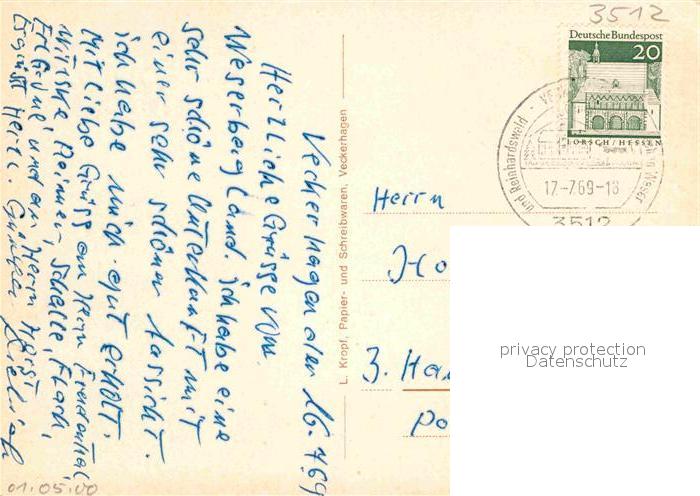 3512
Deutsche Bundespost
20
LORSCH/HESSEN
und Reinhardswald
17.-7.69-18
3512
Veckerhagen den 16.7.69
Herzliche Grüsse vom
Weserbergland. ich habe eine
sehr schöne Unterkunft mit
einer sehr schöner Aussicht.
ich habe mich gut erholt.
Mit liebe Grüsse an Herrn Freudenthal,
Erlgrüne und an Herrn Horst
Es grüsst Herr. Günther
L. Kropf, Papier- und Schreibwaren, Veckerhagen
Herrn
Ho
3. Ha
Po
privacy protection
Datenschutz
01.05.00